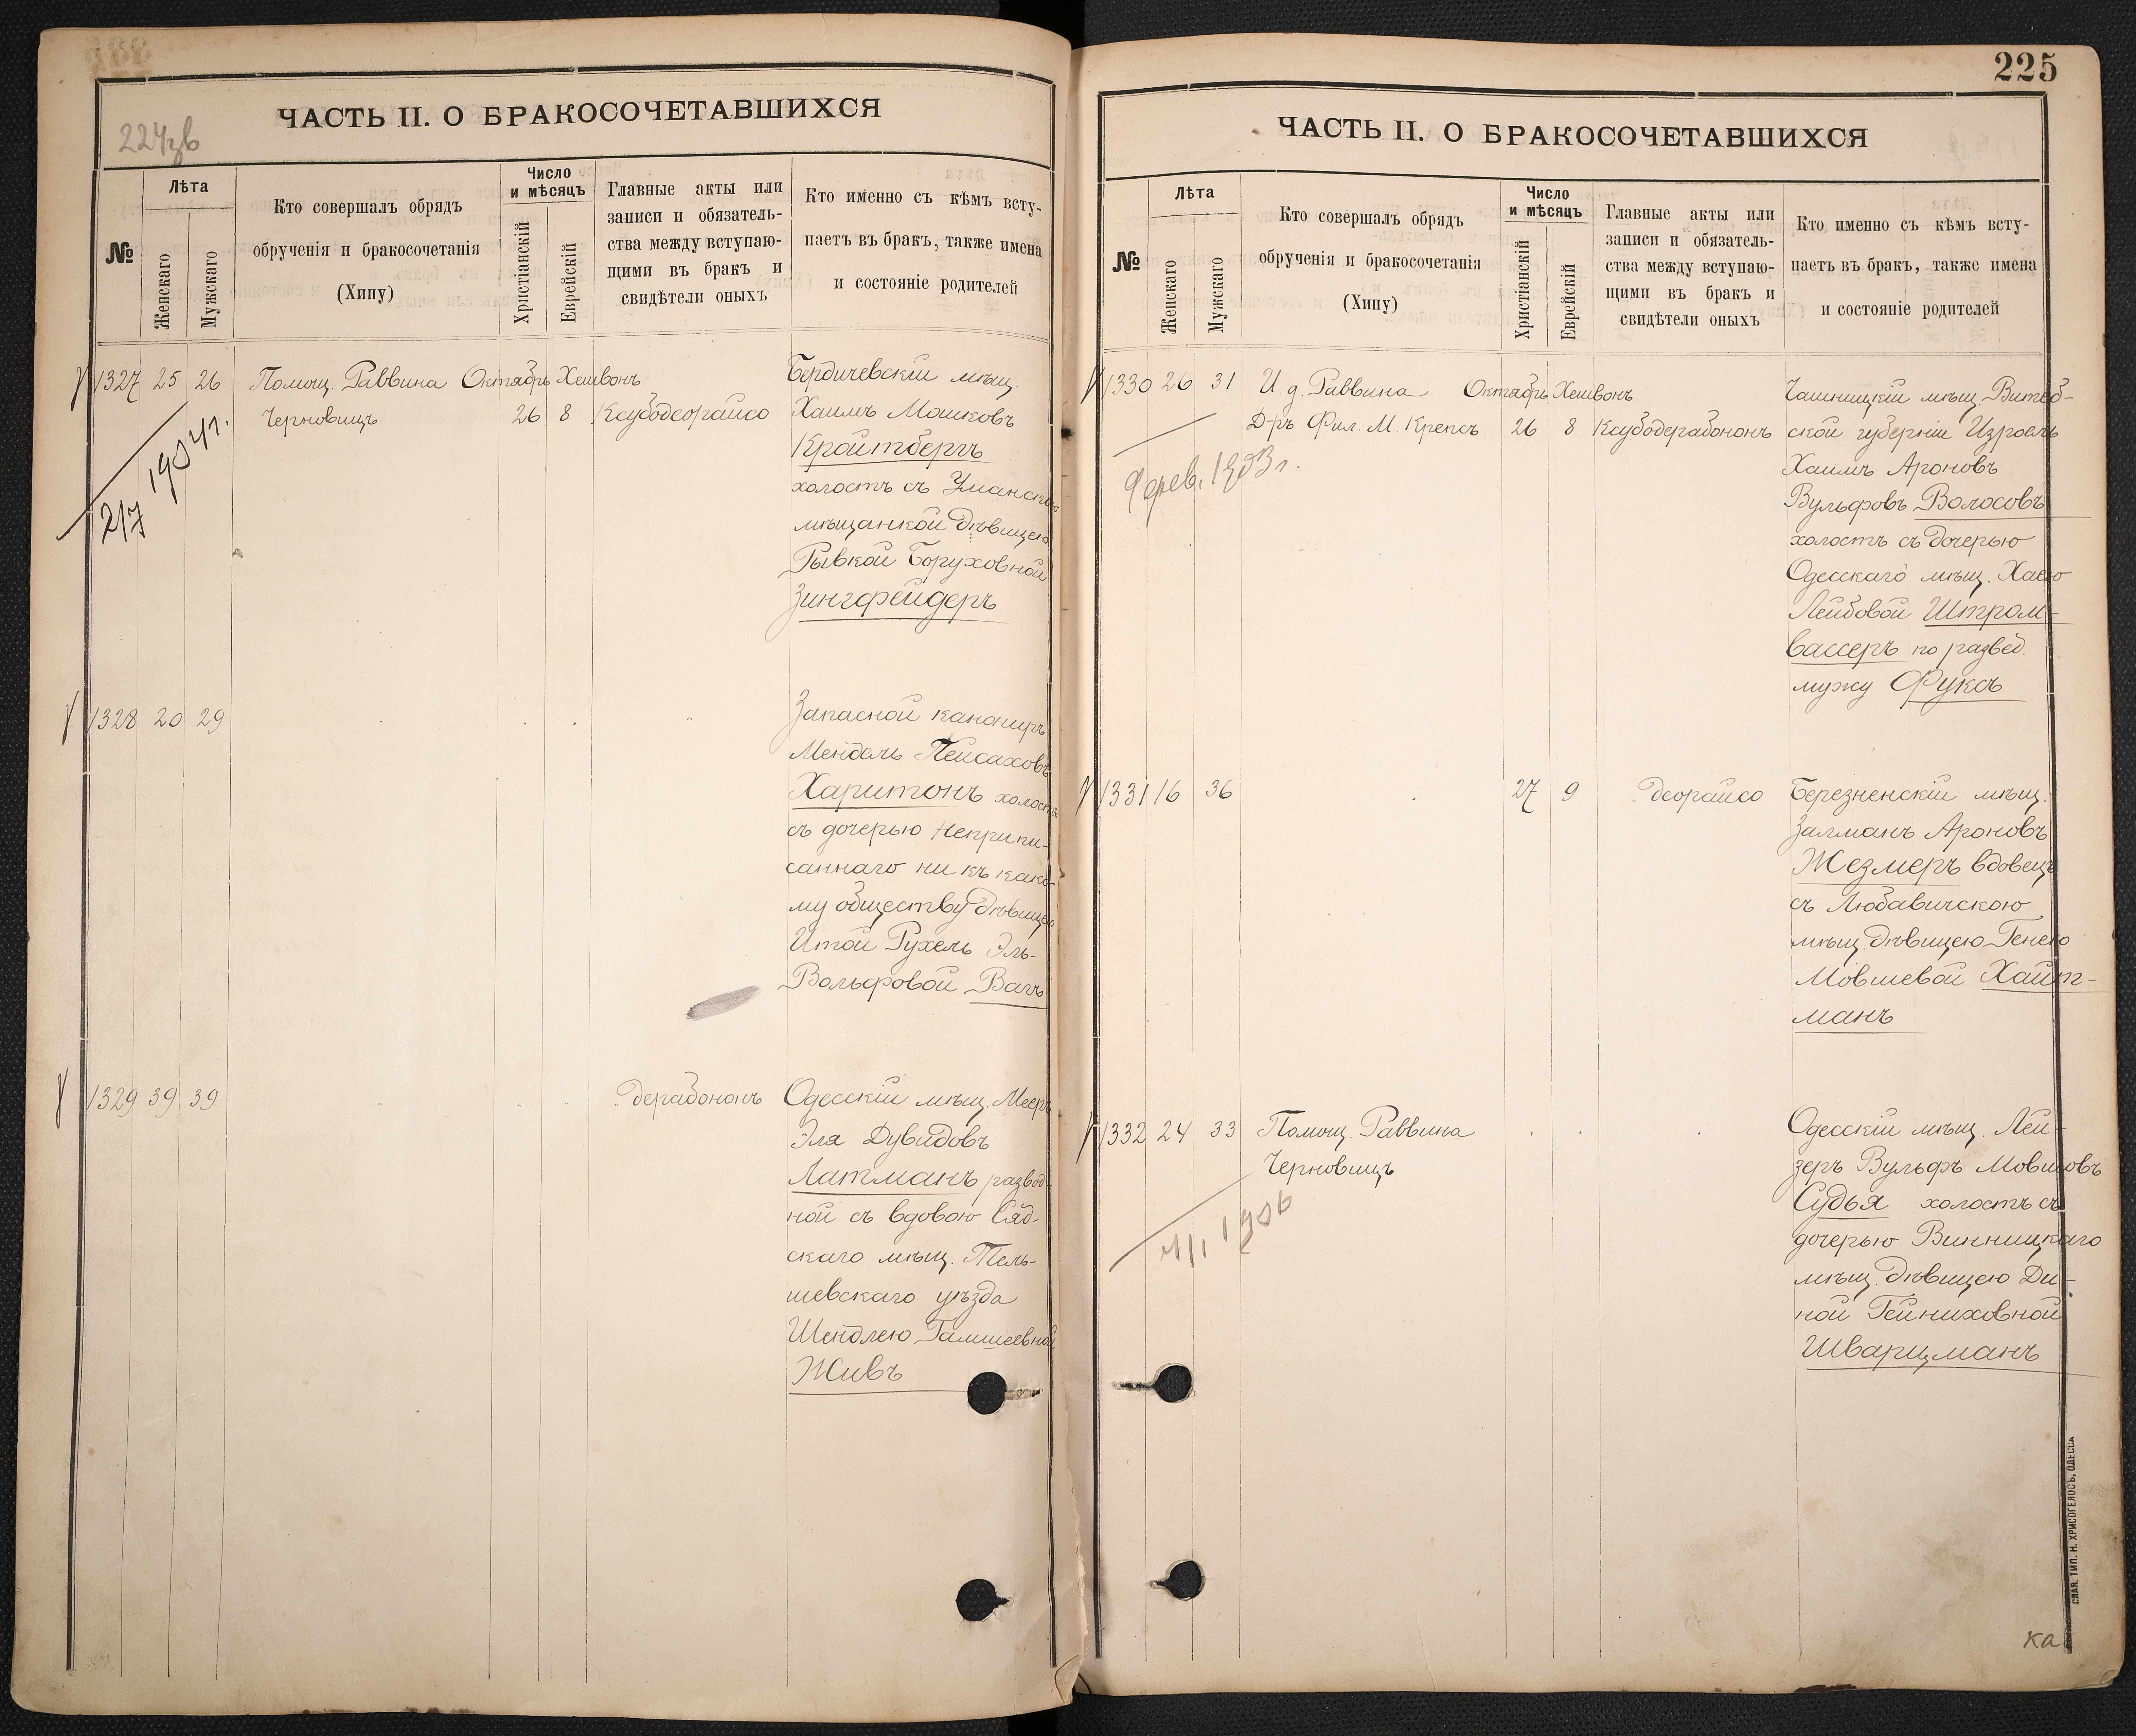 224зв
ЧАСТЬ II. О БРАКОСОЧЕТАВШИХСЯ
№
Лѣта
Женскаго
Мужскаго
Кто совершалъ обрядъ
обрученія и бракосочетанія
(Хипу)
Число
и мѣсяцъ
Христіанскій
Еврейскій
Главные акты или
записи и обязатель-
ства между вступаю-
щими въ бракъ и
свидѣтели оныхъ
Кто именно съ кѣмъ всту-
паетъ въ бракъ, также имена
и состояніе родителей
1327 25 26 Помощ. Раввина Октябрь Хешвонъ
Черновицъ 26 8 Ксубодеорайсо
2/7 1904 г.
Бердичевскій мѣщ.
Хаимъ Мошковъ
Кройтбергъ
холостъ съ Уманскою
мѣщанкой дѣвицею
Рывкой Боруховной
Зингфейдеръ
1328 20 29
Запасной канониръ
Мендель Пейсаховъ
Харитонъ холостъ
съ дочерью неприпи-
саннаго ни къ како-
му обществу дѣвицею
Итой Рухель Эль-
Вольфовой Вагъ
1329 39 39 дерабононъ
Одесскій мѣщ. Мееръ
Эля Дувидовъ
Латманъ развод-
ной съ вдовою Сяд-
скаго мѣщ. Тель-
шевскаго уѣзда
Шендлею Гамшеевной
Живъ
225
ЧАСТЬ II. О БРАКОСОЧЕТАВШИХСЯ
№
Лѣта
Женскаго
Мужскаго
Кто совершалъ обрядъ
обрученія и бракосочетанія
(Хипу)
Число
и мѣсяцъ
Христіанскій
Еврейскій
Главные акты или
записи и обязатель-
ства между вступаю-
щими въ бракъ и
свидѣтели оныхъ
Кто именно съ кѣмъ всту-
паетъ въ бракъ, также имена
и состояніе родителей
1330 26 31 И. д. Раввина Октябрь Хешвонъ
Д-ръ Фил. М. Крепсъ 26 8 Ксубодерабононъ
9 фев. 1903 г.
Чашницкій мѣщ. Витеб-
ской губерніи Изроель
Хаимъ Ароновъ
Вульфовъ Волосовъ
холостъ съ дочерью
Одесскаго мѣщ. Хаею
Лейбовой Штром-
вассеръ по развед.
мужу Фуксъ
1331 16 36 27 9 деорайсо
Березненскій мѣщ.
Залманъ Ароновъ
Жезмеръ вдовецъ
съ Любавичскою
мѣщ. дѣвицею Генею
Мовшевой Хайт-
манъ
1332 24 33 Помощ. Раввина
Черновицъ
1906
Одесскій мѣщ. Лей-
зеръ Вульфъ Мовшовъ
Судья холостъ съ
дочерью Винницкаго
мѣщ. дѣвицею Ди-
ной Гейниховной
Шварцманъ
СЛАВ. ТИП. Н. ХРИСОГЕЛОСЪ. ОДЕССА
Ка